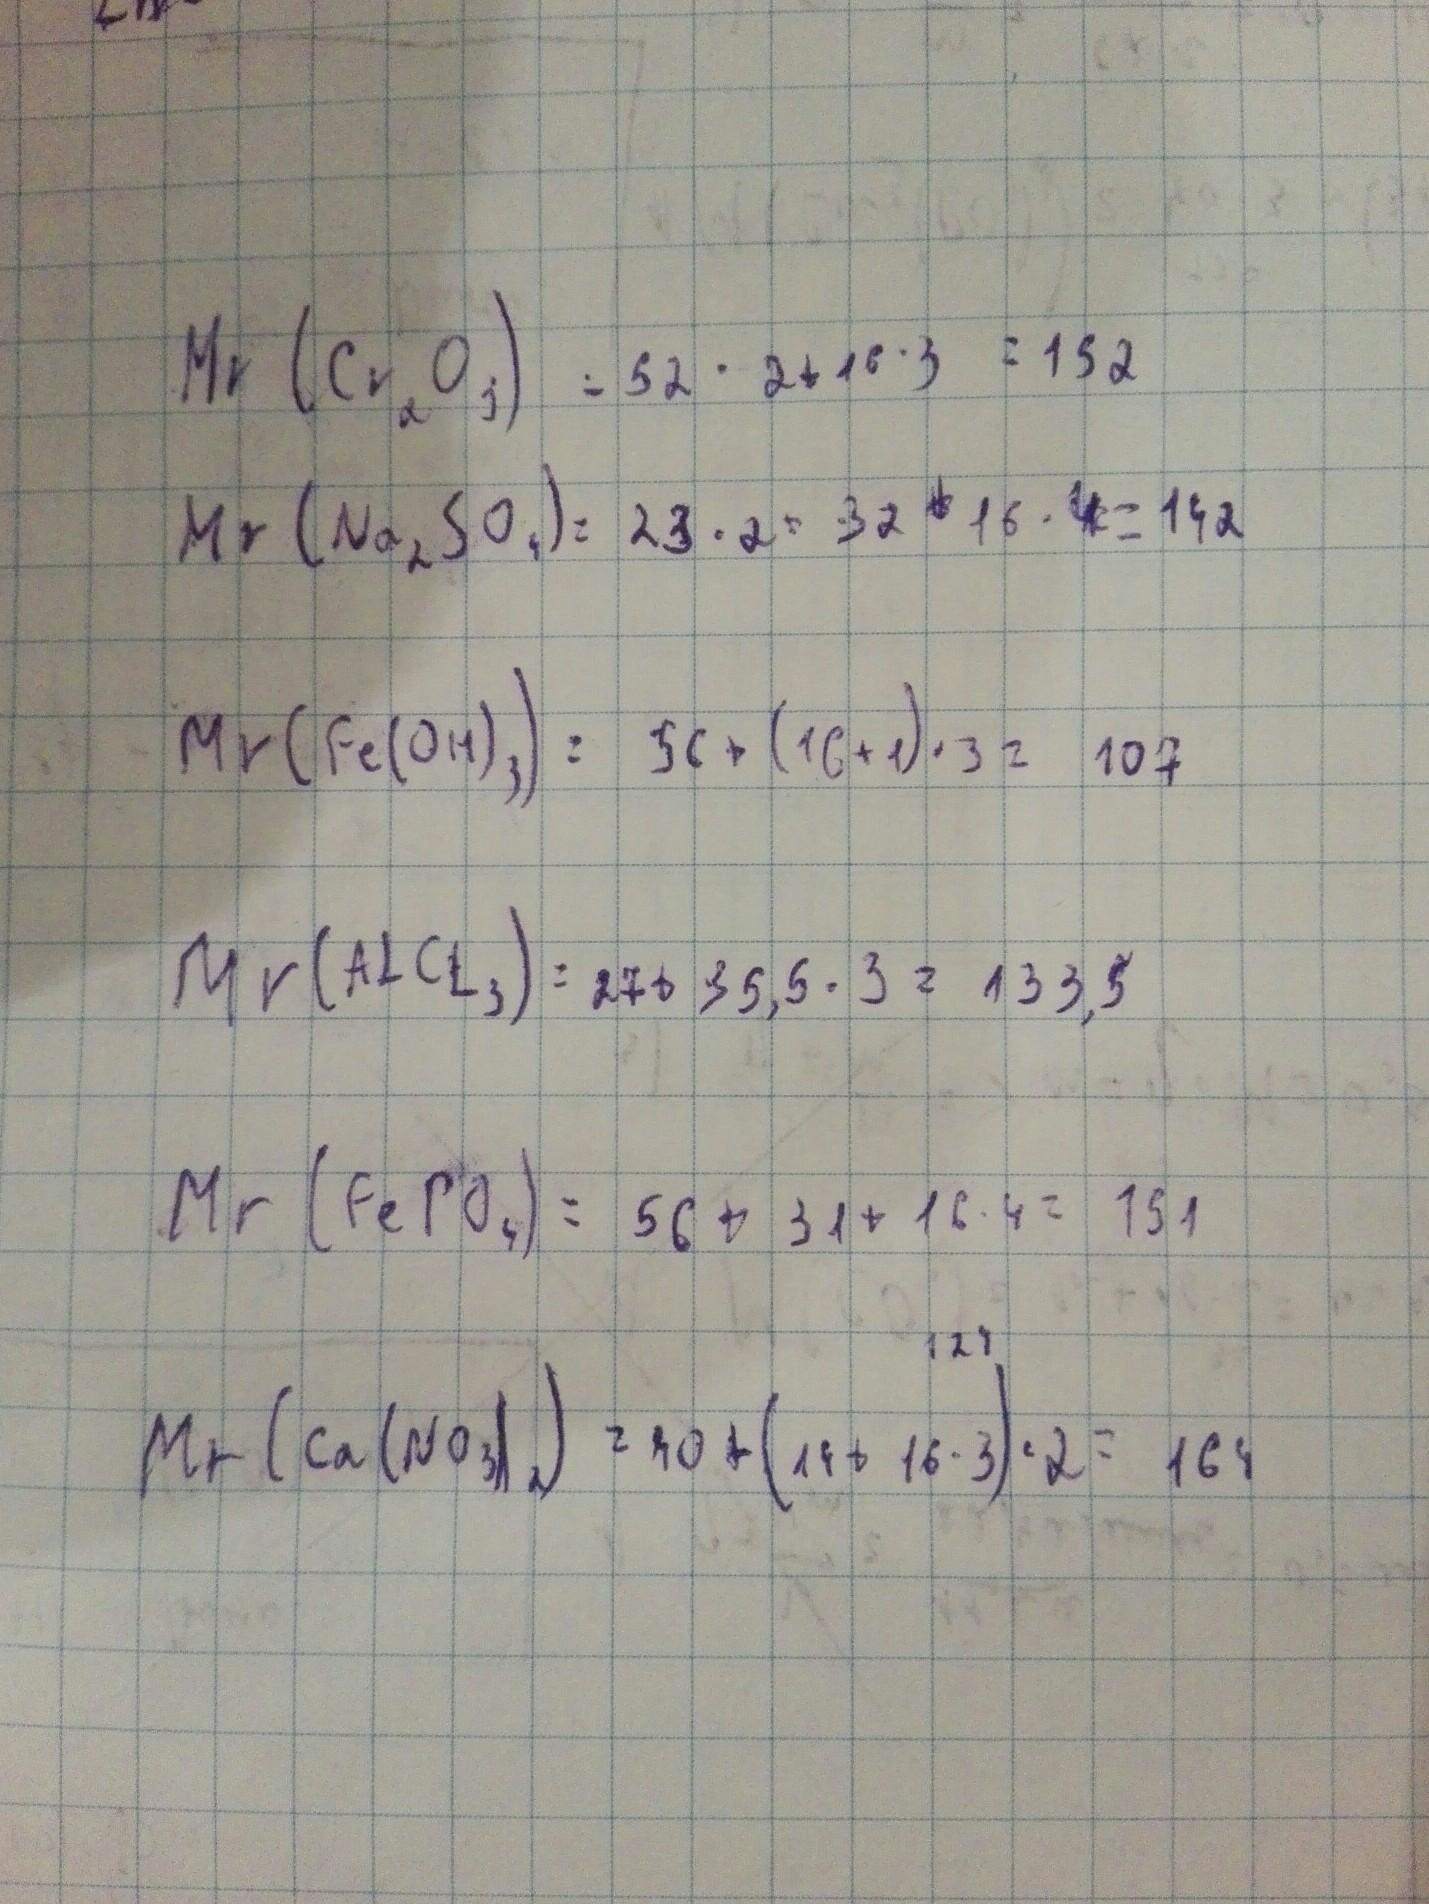 Mr (Cr₂O₃) = 52 · 2 + 16 · 3 = 152
Mr (Na₂SO₄) = 23 · 2 = 32 + 16 · 4 = 142
Mr (Fe(OH)₃) = 56 + (16 + 1) · 3 = 107
Mr (AlCl₃) = 27 + 35,5 · 3 = 133,5
Mr (FePO₄) = 56 + 31 + 16 · 4 = 151
124
Mr (Ca(NO₃)₂) = 40 + (14 + 16 · 3) · 2 = 164